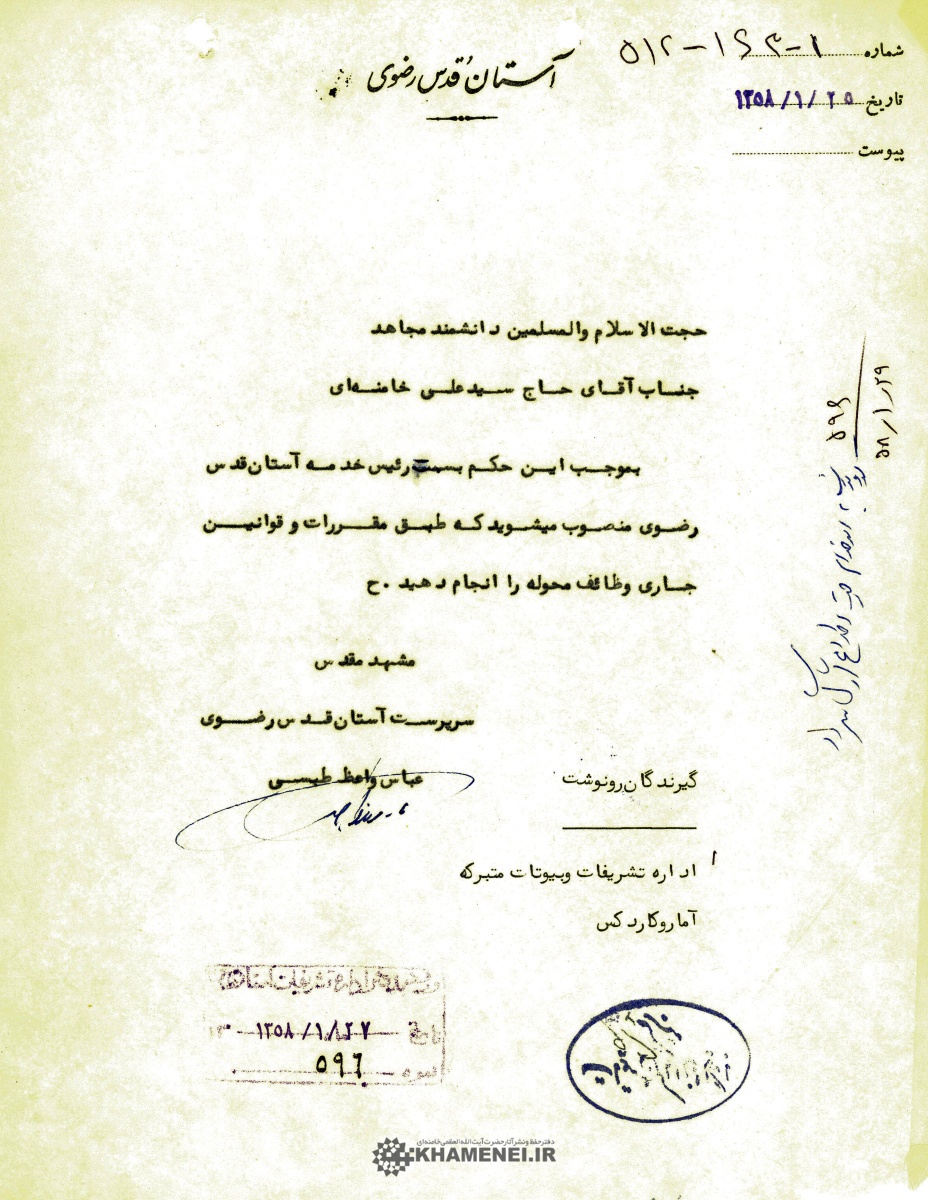 آستان قدس رضوی
شماره ۱-۱۶۳-۵۱۲
تاریخ ۱۳۵۸/۱/۲۵
پیوست
حجت الاسلام والمسلمین دانشمند مجاهد
جناب آقای حاج سید علی خامنه‌ای
بموجب این حکم بسمت رئیس خدمه آستان قدس
رضوی منصوب میشوید که طبق مقررات و قوانین
جاری وظائف محوله را انجام دهید .ح
مشهد مقدس
سرپرست آستان قدس رضوی
عباس واعظ طبسی
گیرندگان رونوشت
۱ اداره تشریفات وبیوتات متبرکه
آماروکاردکس
۵۹۶
۵۸/۱/۲۹
اداره تشریفات آستان
تاریخ ۱۳۵۸/۱/۲۷
۵۹۶
دفتر حفظ و نشر آثار حضرت آیت‌الله‌العظمی خامنه‌ای
KHAMENEI.IR